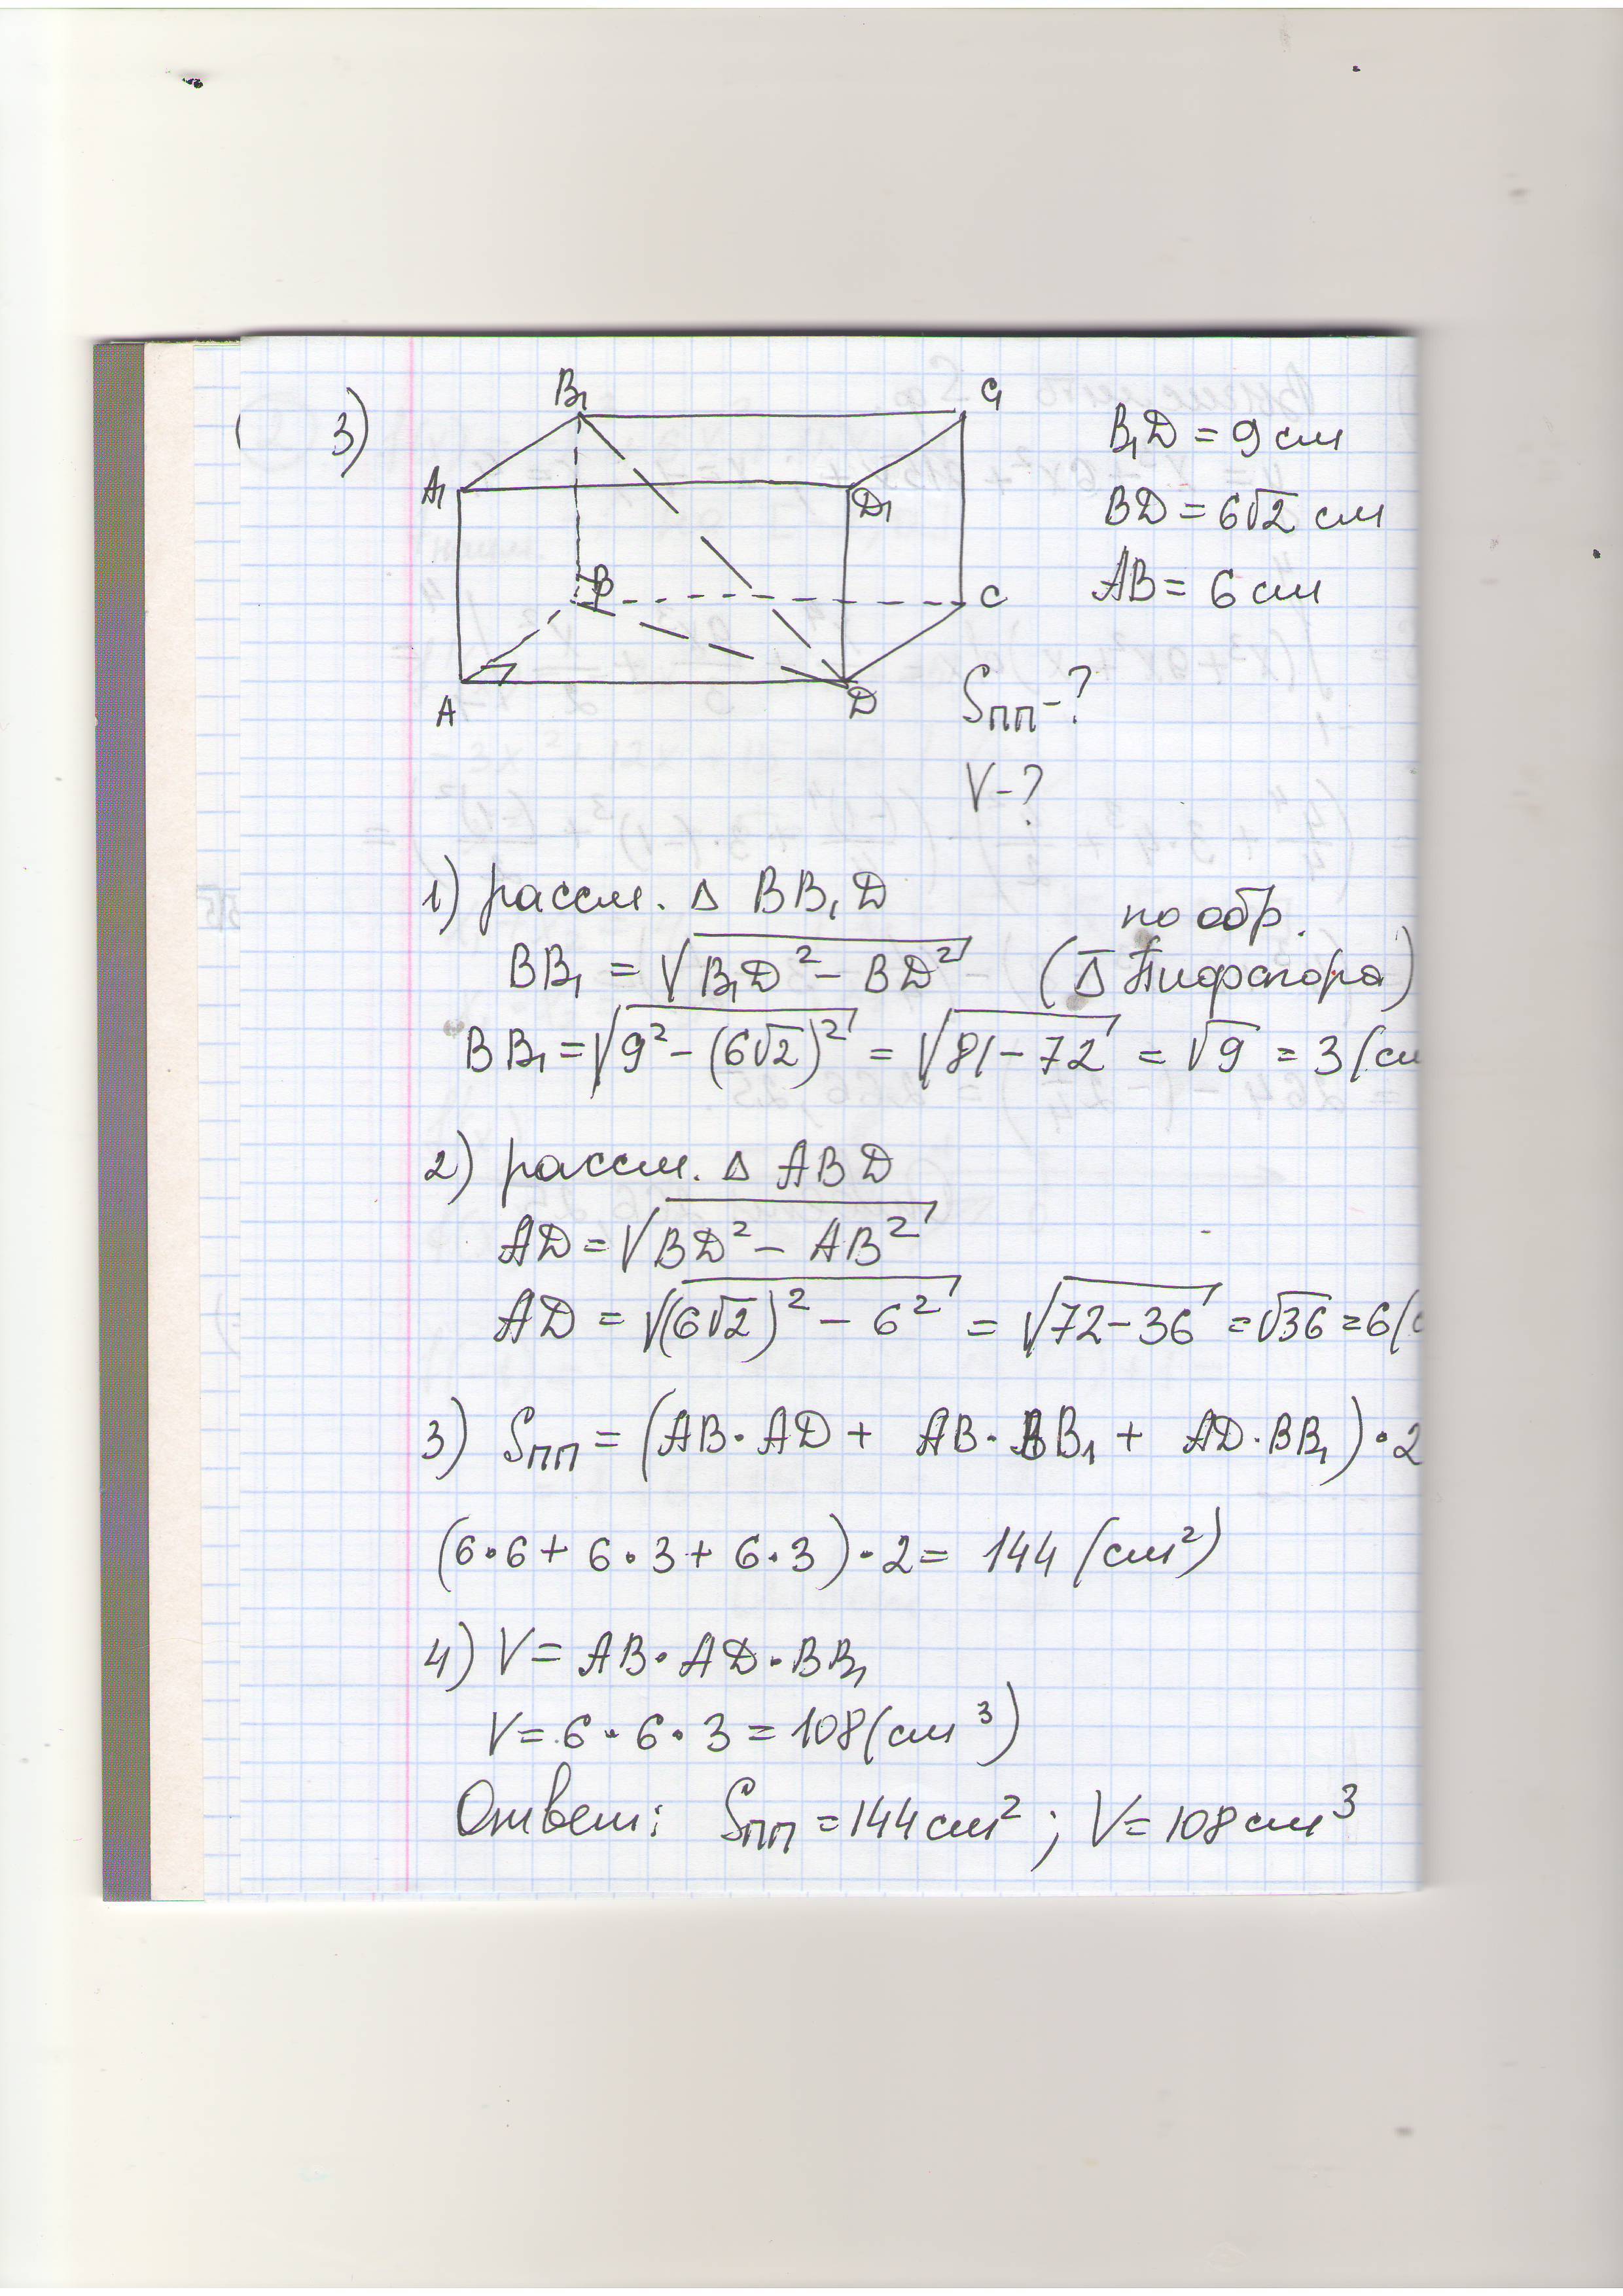 3)
B₁ C₁
A₁ D₁
B C
A D
B₁D = 9 см
BD = 6√2 см
AB = 6 см
Sпп-?
V-?
1) рассм. Δ BB₁D
по обр.
BB₁ = √B₁D² - BD² (Δ Пифагора)
BB₁ = √9² - (6√2)² = √81 - 72 = √9 = 3 (см
2) рассм. Δ ABD
AD = √BD² - AB²
AD = √(6√2)² - 6² = √72 - 36 = √36 = 6 (с
3) Sпп = (AB · AD + AB · BB₁ + AD · BB₁) · 2
(6 · 6 + 6 · 3 + 6 · 3) · 2 = 144 (см²)
4) V = AB · AD · BB₁
V = 6 · 6 · 3 = 108 (см³)
Ответ: Sпп = 144 см² ; V = 108 см³